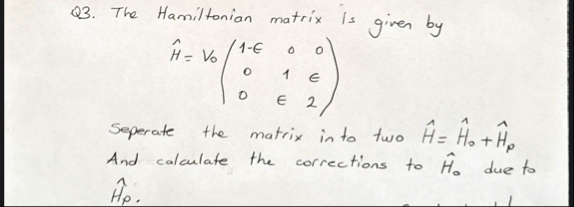 Q3. The Hamiltonian matrix is given by
Ĥ = V₀ ( 1-ϵ 0 0
0 1 ϵ
0 ϵ 2 )
Seperate the matrix in to two Ĥ = Ĥ₀ + Ĥₚ
And calculate the corrections to Ĥ₀ due to
Ĥₚ.